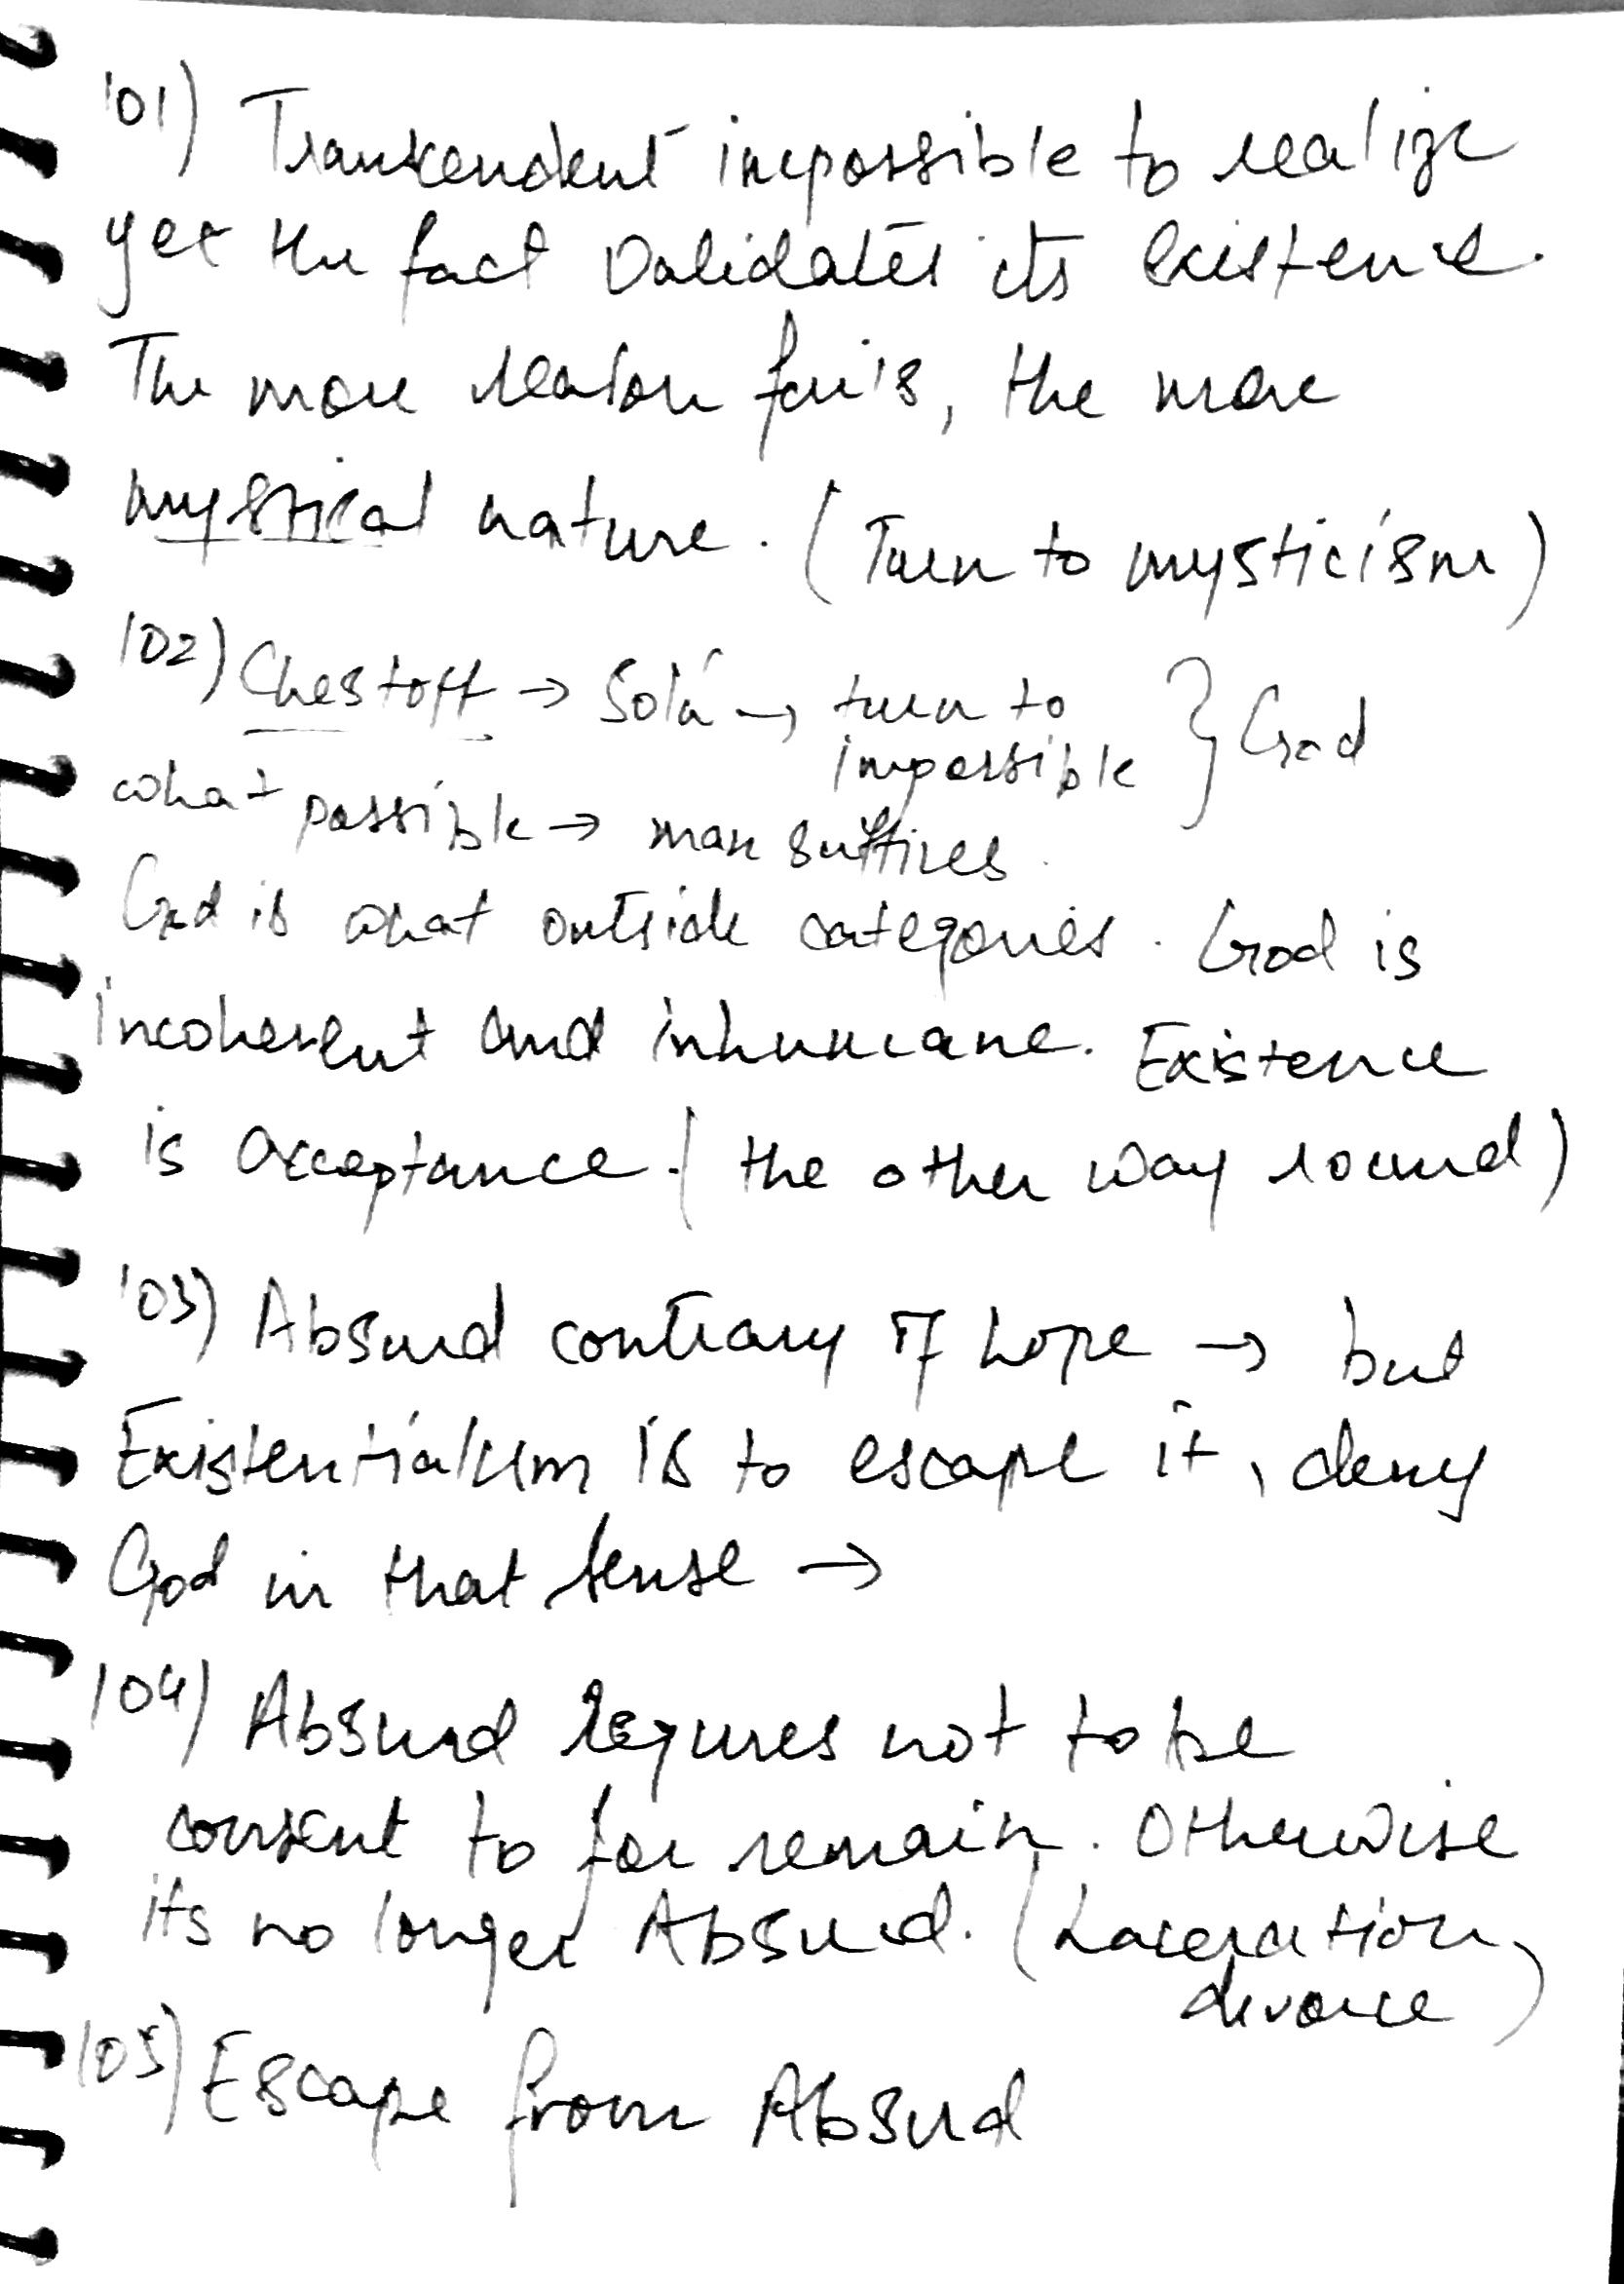 101) Transcendent impossible to realize
yet the fact validates its existence.
The more reason fails, the more
mystical nature. (Turn to mysticism)
102) Chestoff → Sol → turn to impossible } God
what possible → man suffices.
God is what outside categories. God is
incoherent and inhumane. Existence
is acceptance. (the other way round)
103) Absurd contrary of hope → but
Existentialism is to escape it, deny
God in that sense →
104) Absurd requres not to be
consent to for remain. Otherwise
its no longer Absurd. (Laceration,
divorce)
105) Escape from Absurd